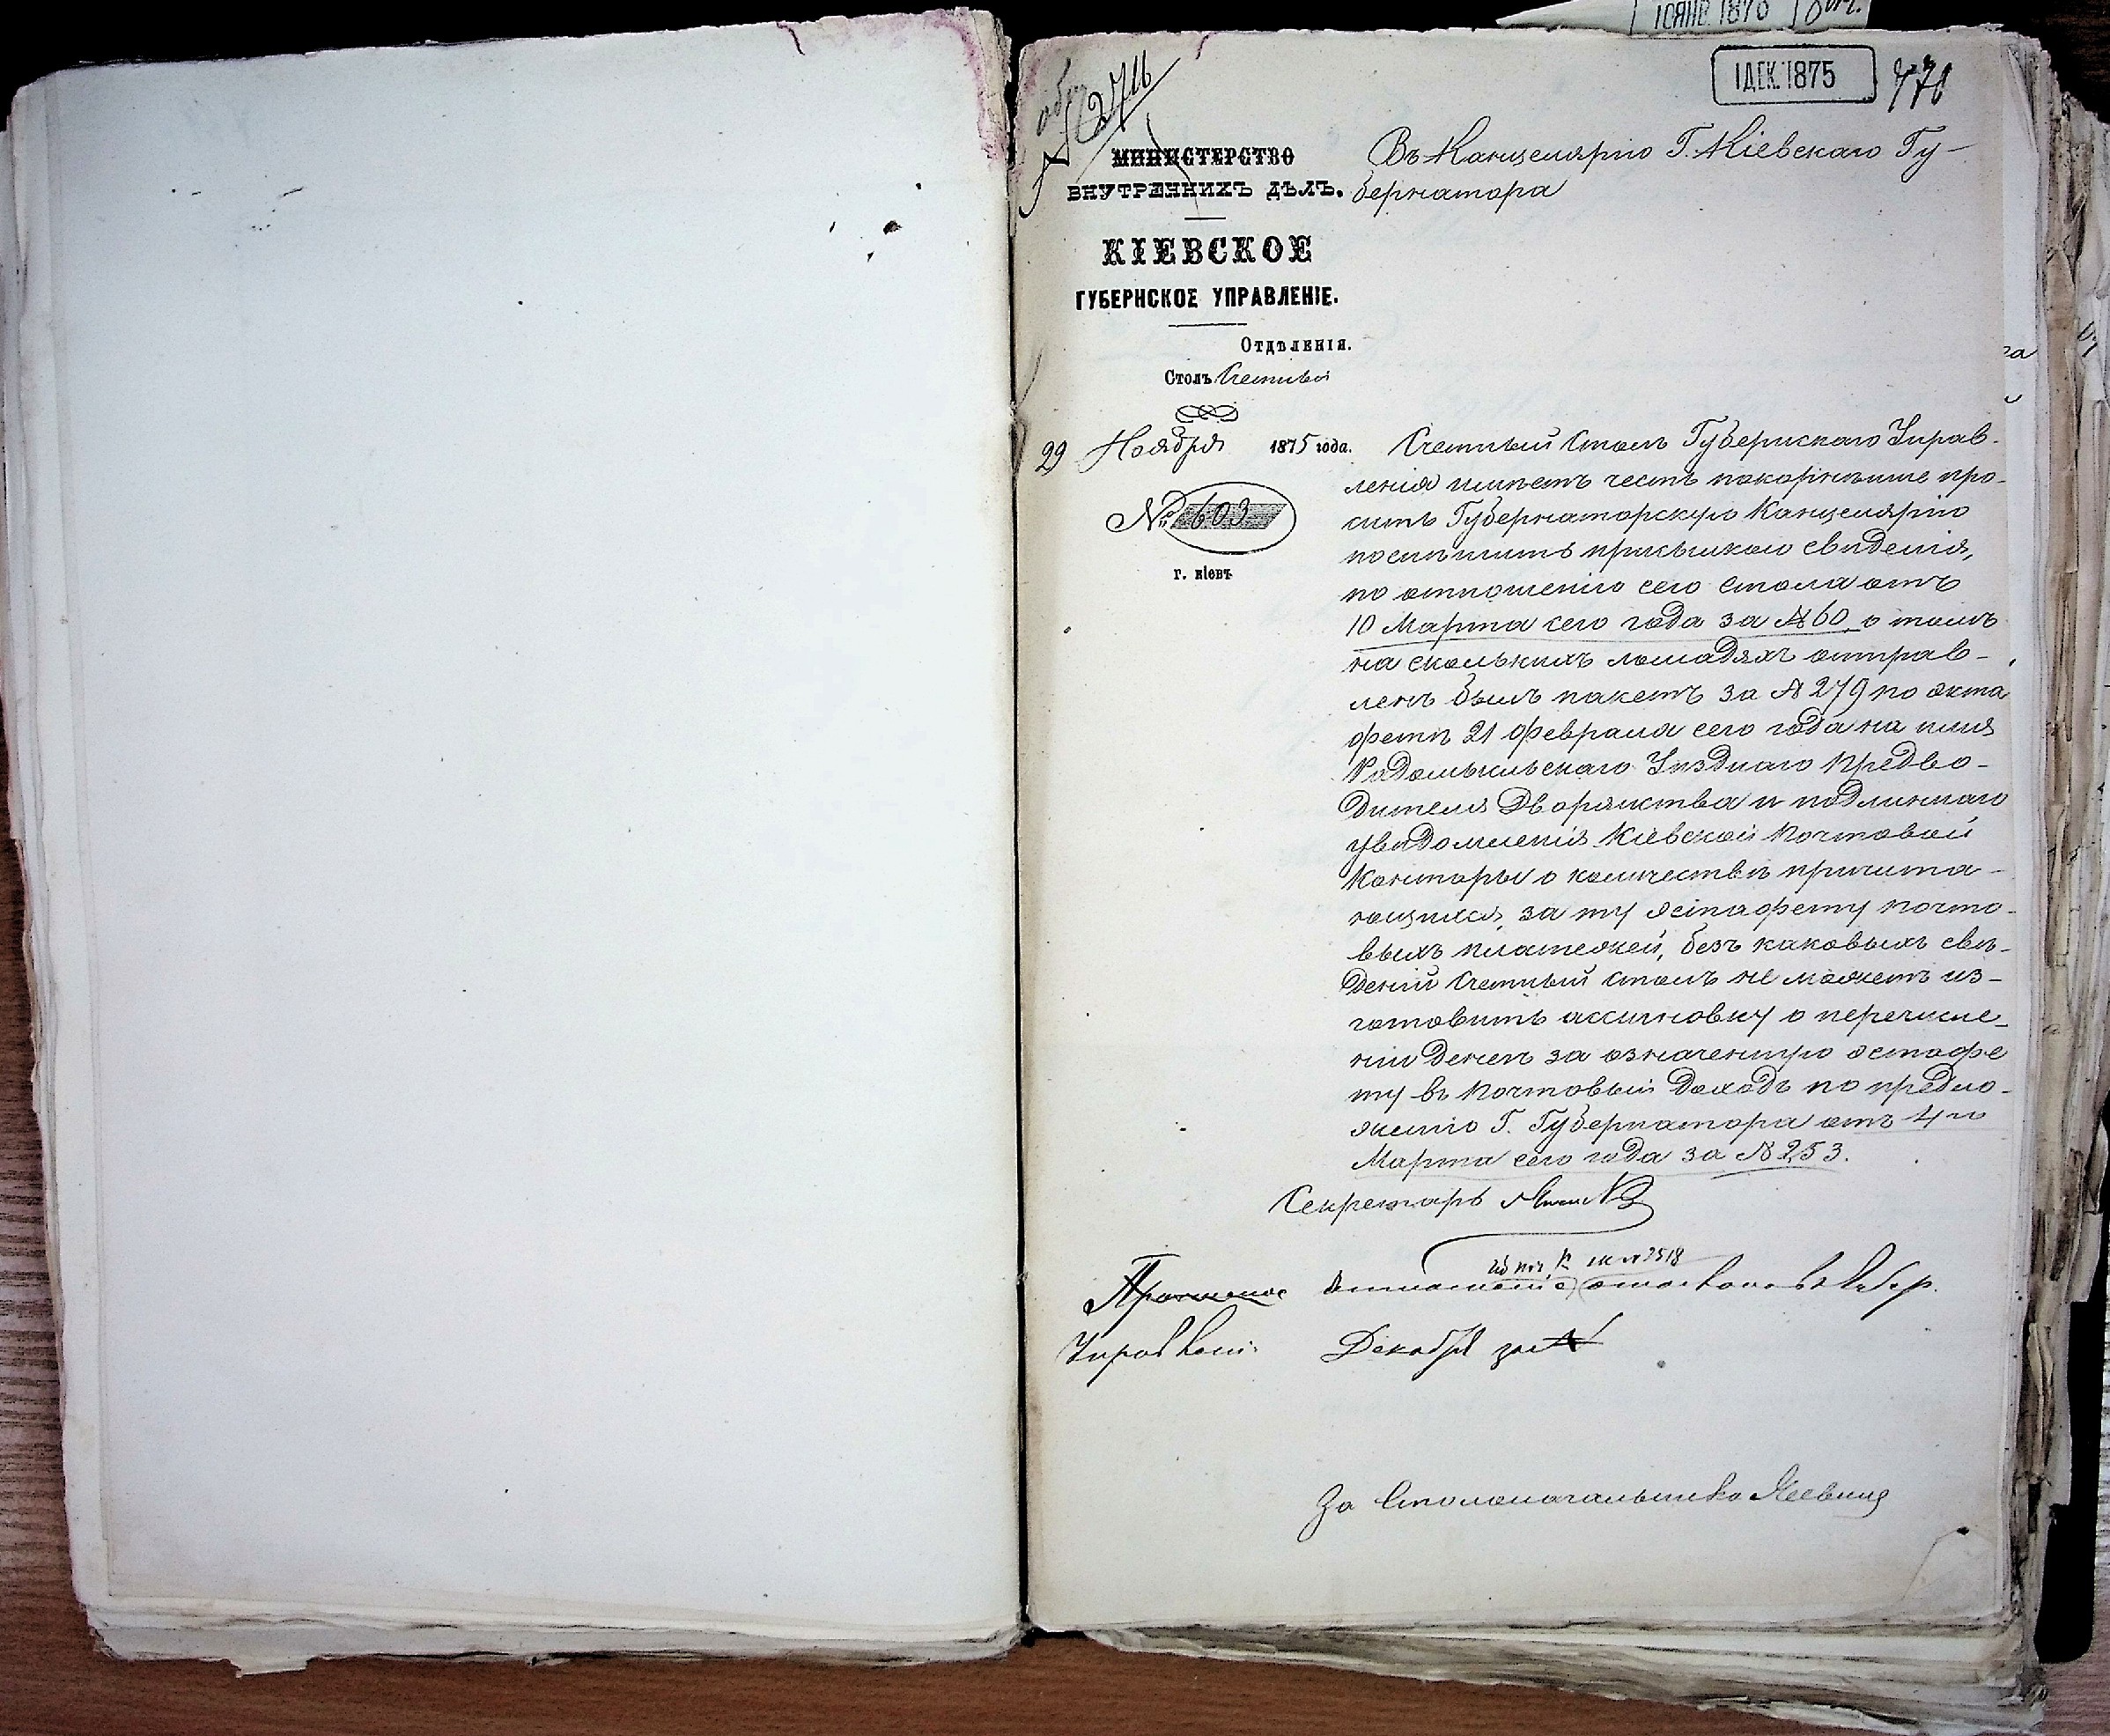 1 ДЕК. 1875
2716
МИНИСТЕРСТВО
ВНУТРЕННИХЪ ДѢЛЪ.
КІЕВСКОЕ
ГУБЕРНСКОЕ УПРАВЛЕНІЕ.
Отдѣленія.
Столъ Счетный
29 Ноября 1875 года.
№ 603
г. кіевъ
Въ Канцелярію Г. Кіевскаго Гу-
бернатора
Счетный Столъ Губернскаго Управ-
ленія имѣетъ честь покорнѣйше про-
ситъ Губернаторскую Канцелярію
поспѣшить присылкою свѣденія,
по отношенію сего стола отъ
10 Марта сего года за № 60, о томъ
на сколькихъ лошадяхъ отправ-
ленъ былъ пакетъ за № 279 по эста
фетѣ 21 февраля сего года на имя
Радомысльскаго Уѣзднаго Предво-
дителя Дворянства и подлиннаго
увѣдомленія Кіевской Почтовой
Конторы о количествѣ причита-
ющихся, за ту эстафету почто-
выхъ платежей, безъ каковыхъ свѣ-
деній Счетный столъ не можетъ из-
готовить ассигновку о перечисле-
ніи денегъ за означенную эстафе
ту въ почтовый доходъ по предло-
женію Г. Губернатора отъ 4го
Марта сего года за № 253.
Секретарь
№ 2518
Отношеніе
Декабря за №
За Столоначальника